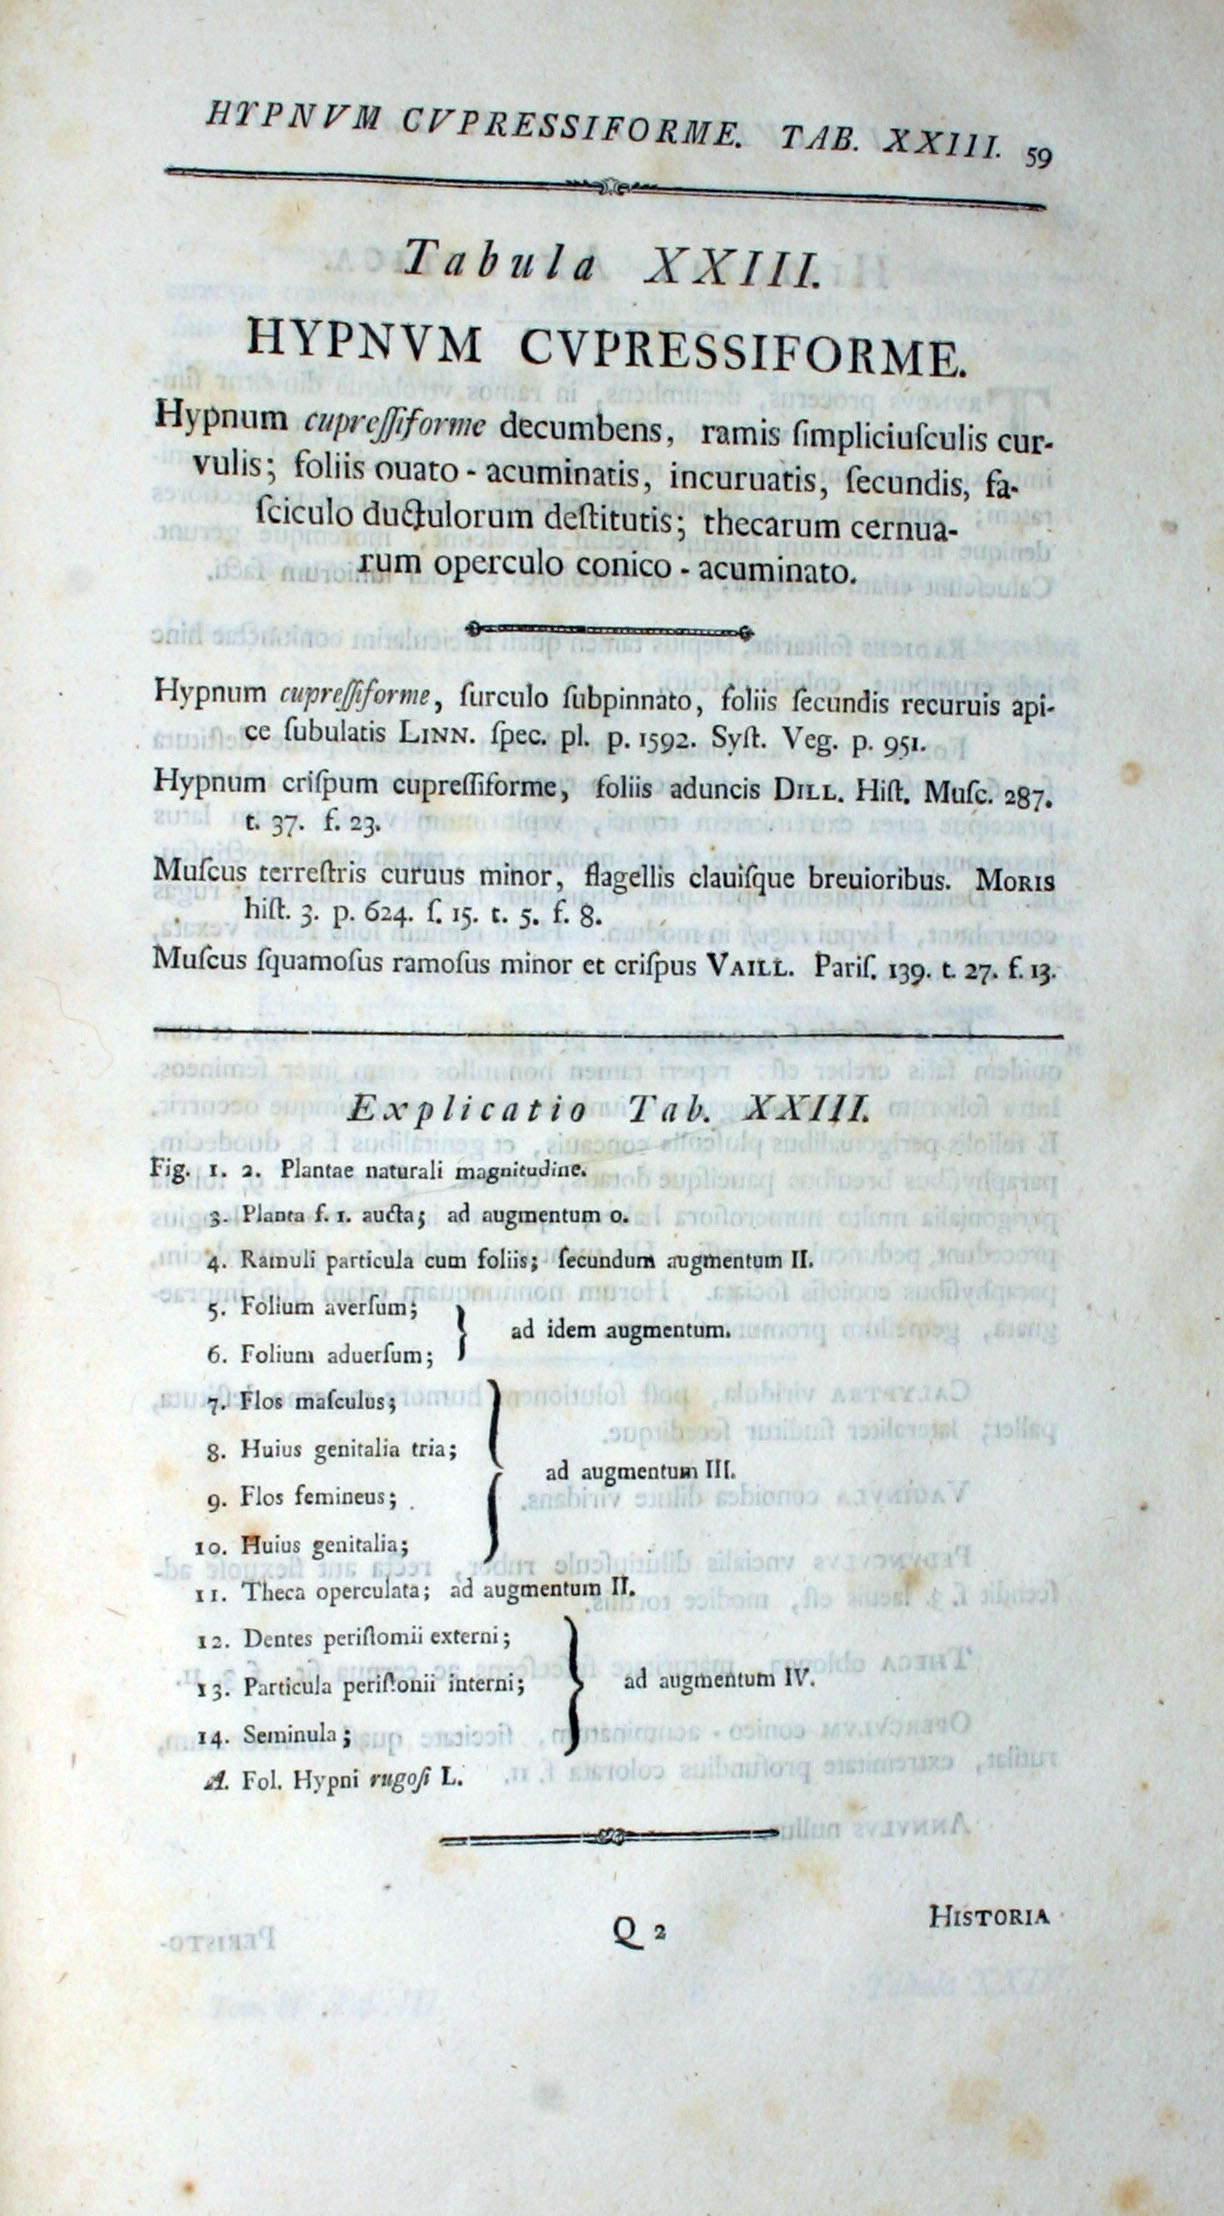 HYPNVM CVPRESSIFORME. TAB. XXIII. 59
Tabula XXIII.
HYPNVM CVPRESSIFORME.
Hypnum cupreſſiforme decumbens, ramis ſimpliciuſculis cur-
vulis; foliis ouato - acuminatis, incuruatis, ſecundis, fa-
ſciculo ductulorum deſtitutis; thecarum cernua-
rum operculo conico - acuminato.
Hypnum cupreſſiforme, ſurculo ſubpinnato, foliis ſecundis recuruis api-
ce ſubulatis LINN. ſpec. pl. p. 1592. Syſt. Veg. p. 951.
Hypnum criſpum cupreſſiforme, foliis aduncis DILL. Hiſt. Muſc. 287.
t. 37. f. 23.
Muſcus terreſtris curuus minor, flagellis clauiſque breuioribus. MORIS
hiſt. 3. p. 624. ſ. 15. t. 5. f. 8.
Muſcus ſquamoſus ramoſus minor et criſpus VAILL. Pariſ. 139. t. 27. f. 13.
Explicatio Tab. XXIII.
Fig. 1. 2. Plantae naturali magnitudine.
3. Planta f. 1. aucta; ad augmentum 0.
4. Ramuli particula cum foliis; ſecundum augmentum II.
5. Folium averſum;
ad idem augmentum.
6. Folium aduerſum;
7. Flos maſculus;
8. Huius genitalia tria;
ad augmentum III.
9. Flos femineus;
10. Huius genitalia;
11. Theca operculata; ad augmentum II.
12. Dentes periſtomii externi;
13. Particula periſtonii interni; ad augmentum IV.
14. Seminula;
A. Fol. Hypni rugoſi L.
Q 2
HISTORIA